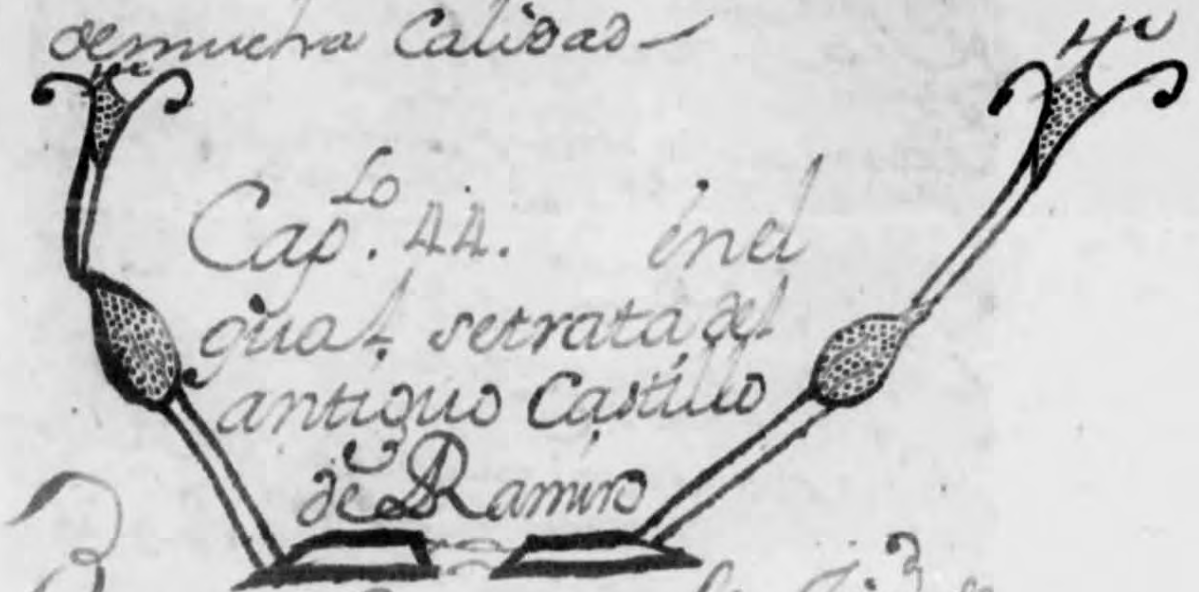 demucha Calidad
Cap.Lo 44. enel
qual, setrata, del
antiguo Castillo
de Ramiro